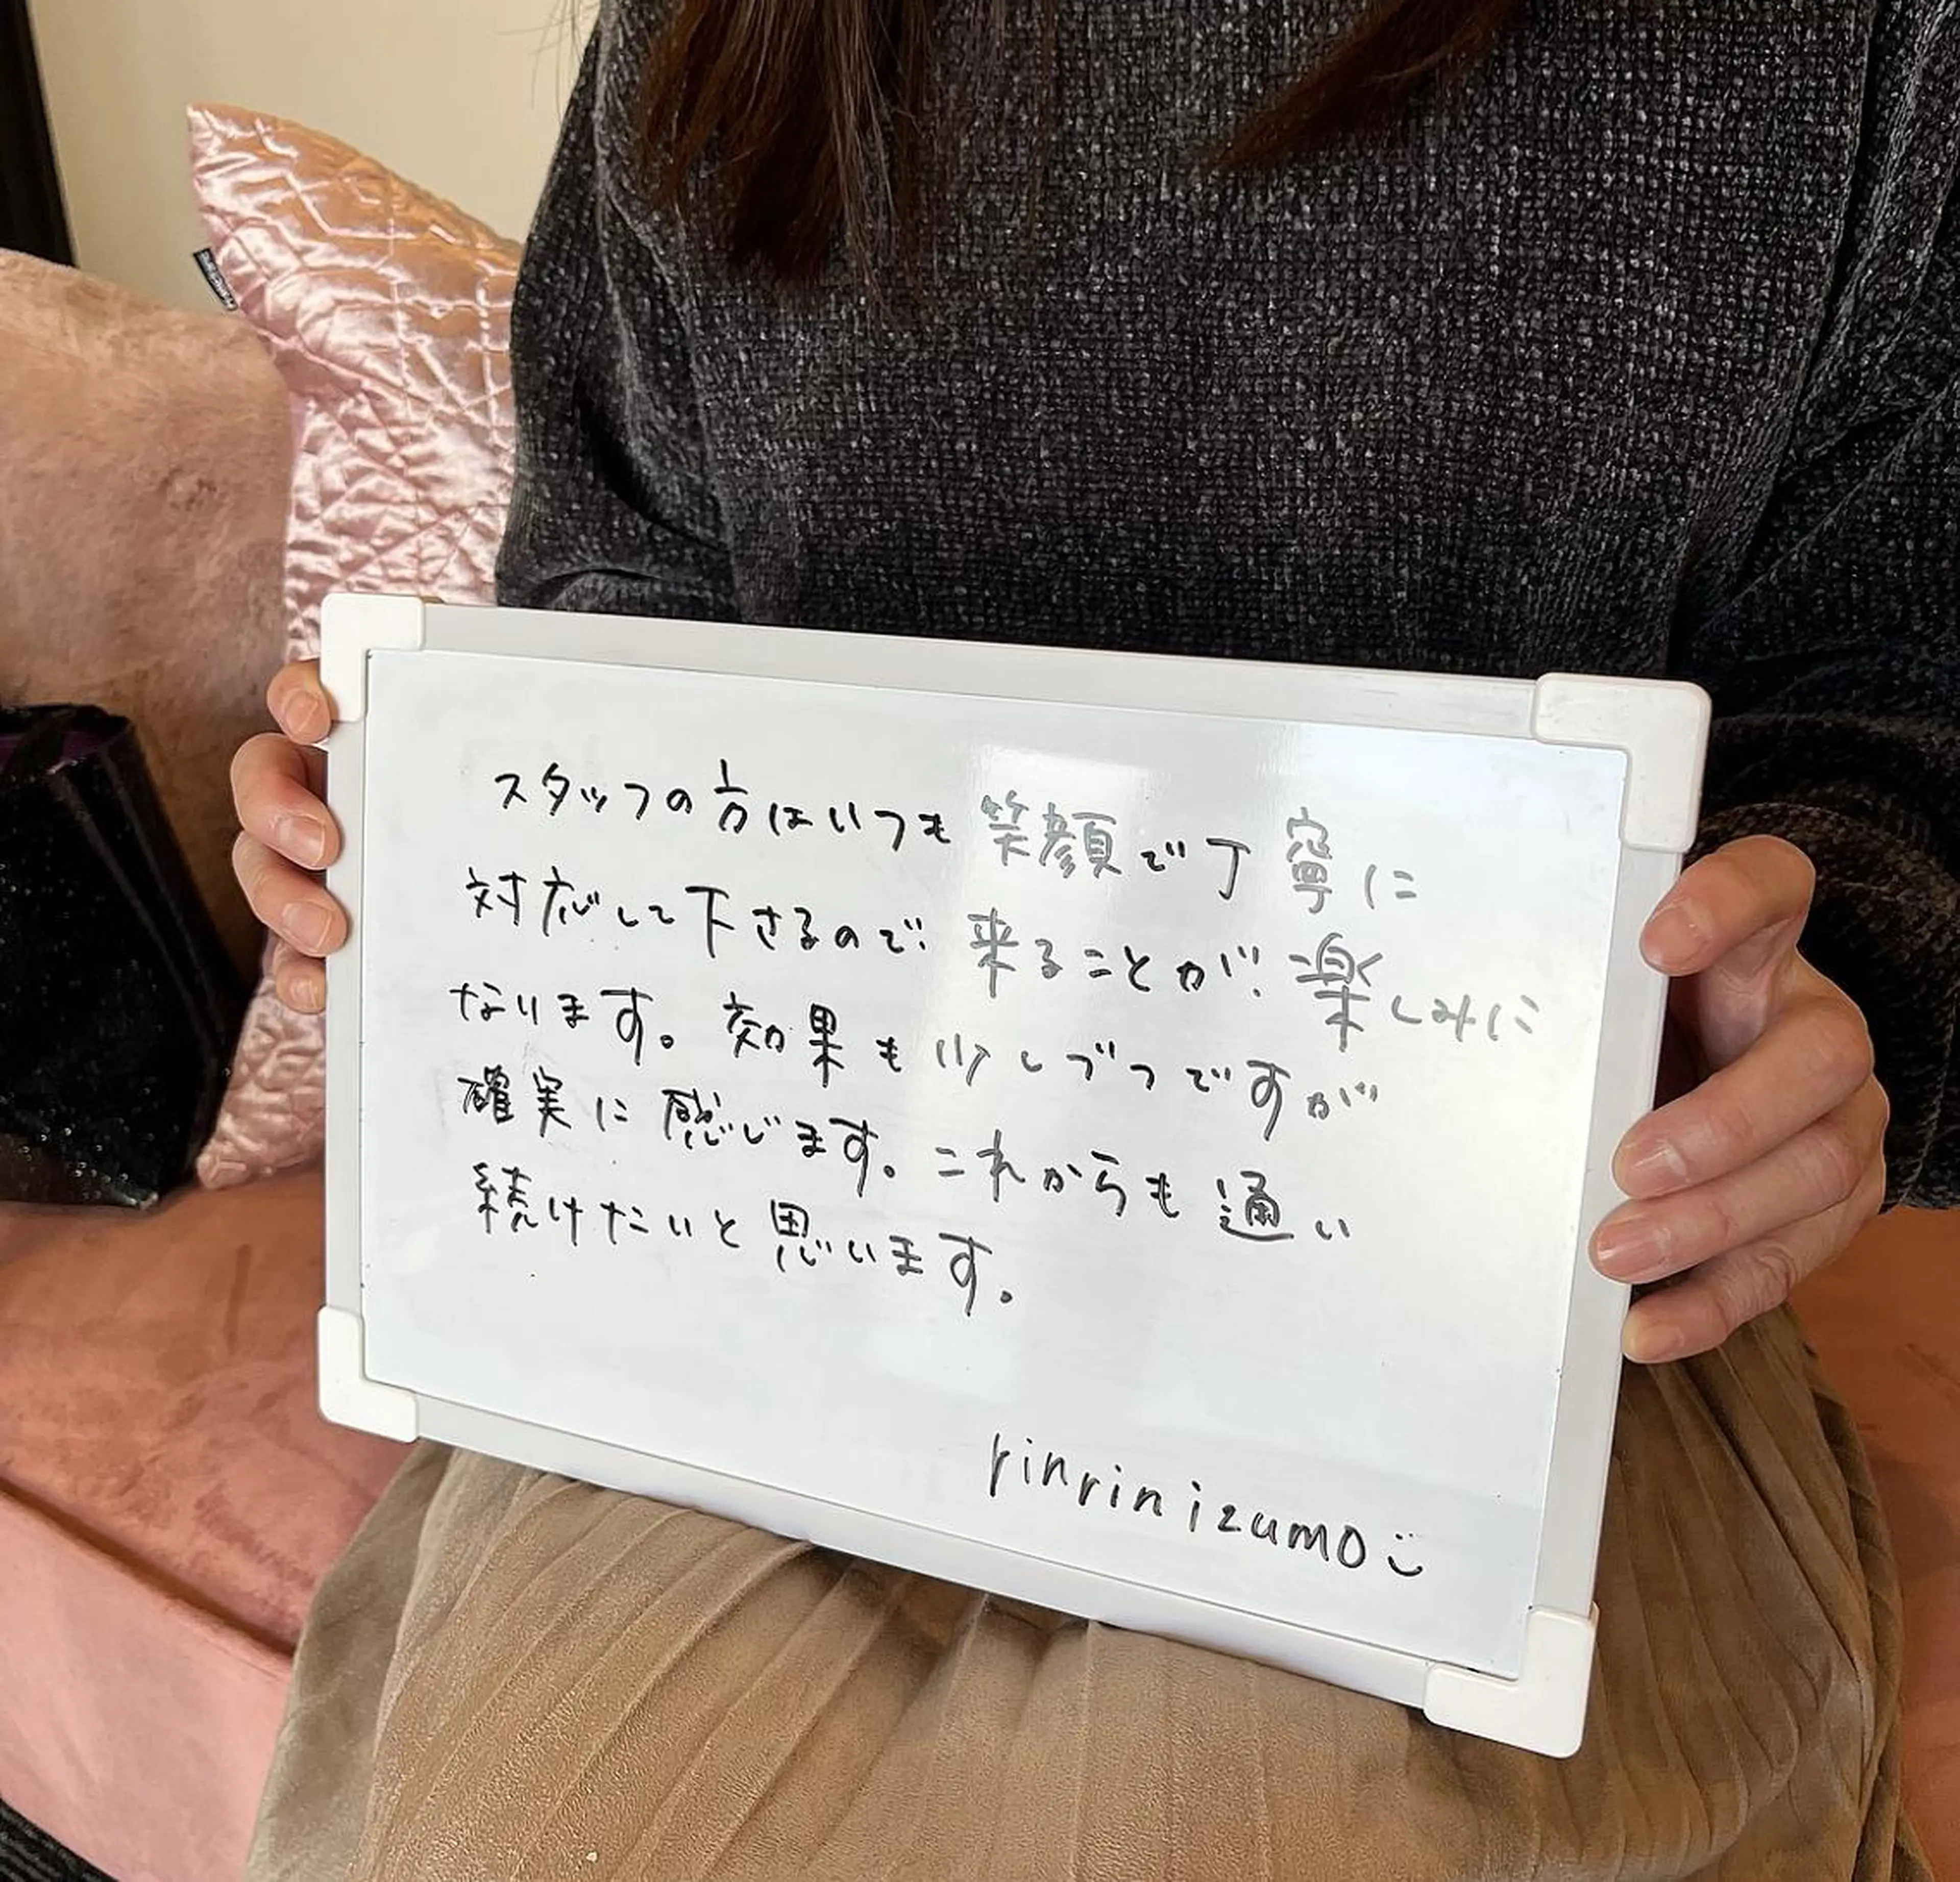 スタッフの方はいつも笑顔で丁寧に
対応して下さるので来ることが楽しみに
なります。効果も少しづつですが
確実に感じます。これからも通い
続けたいと思います。
rinrin izumo